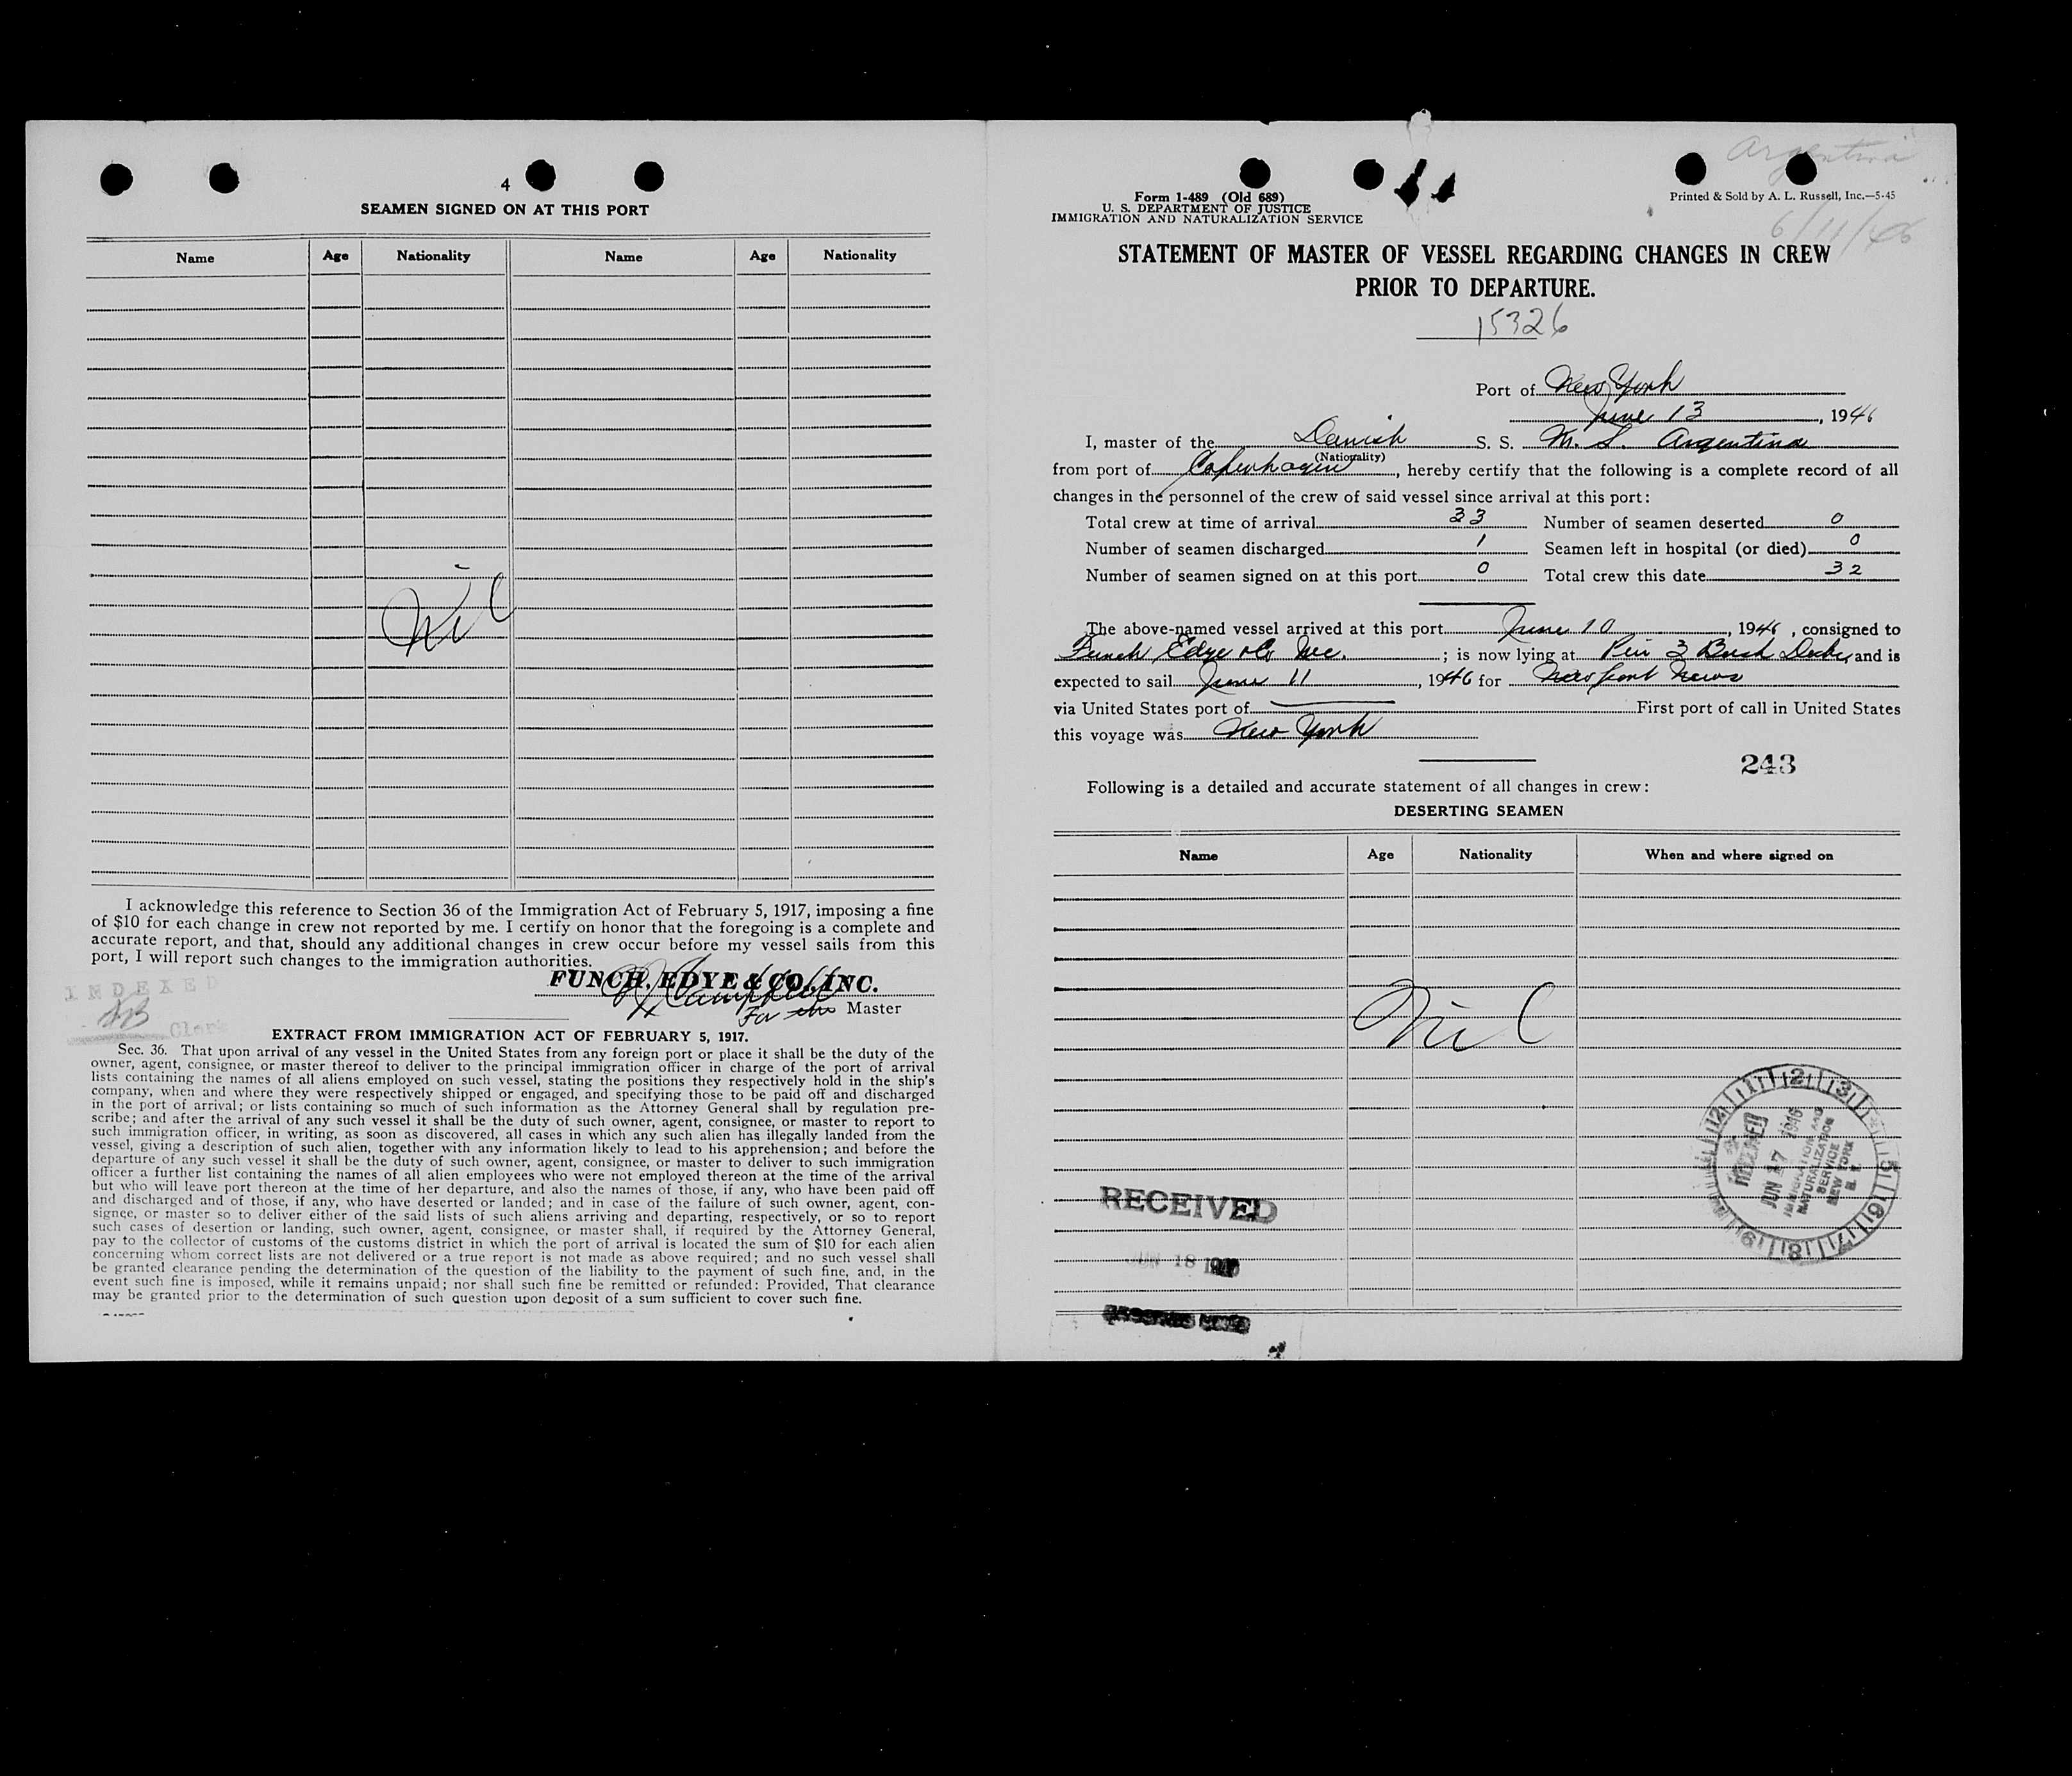 4
SEAMEN SIGNED ON AT THIS PORT
Name Age Nationality Name Age Nationality
Nil
I acknowledge this reference to Section 36 of the Immigration Act of February 5, 1917, imposing a fine
of $10 for each change in crew not reported by me. I certify on honor that the foregoing is a complete and
accurate report, and that, should any additional changes in crew occur before my vessel sails from this
port, I will report such changes to the immigration authorities.
FUNCH, EDYE & CO., INC.
For the Master
INDEXED
Clerk
EXTRACT FROM IMMIGRATION ACT OF FEBRUARY 5, 1917.
Sec. 36. That upon arrival of any vessel in the United States from any foreign port or place it shall be the duty of the
owner, agent, consignee, or master thereof to deliver to the principal immigration officer in charge of the port of arrival
lists containing the names of all aliens employed on such vessel, stating the positions they respectively hold in the ship's
company, when and where they were respectively shipped or engaged, and specifying those to be paid off and discharged
in the port of arrival; or lists containing so much of such information as the Attorney General shall by regulation pre-
scribe; and after the arrival of any such vessel it shall be the duty of such owner, agent, consignee, or master to report to
such immigration officer, in writing, as soon as discovered, all cases in which any such alien has illegally landed from the
vessel, giving a description of such alien, together with any information likely to lead to his apprehension; and before the
departure of any such vessel it shall be the duty of such owner, agent, consignee, or master to deliver to such immigration
officer a further list containing the names of all alien employees who were not employed thereon at the time of the arrival
but who will leave port thereon at the time of her departure, and also the names of those, if any, who have been paid off
and discharged and of those, if any, who have deserted or landed; and in case of the failure of such owner, agent, con-
signee, or master so to deliver either of the said lists of such aliens arriving and departing, respectively, or so to report
such cases of desertion or landing, such owner, agent, consignee, or master shall, if required by the Attorney General,
pay to the collector of customs of the customs district in which the port of arrival is located the sum of $10 for each alien
concerning whom correct lists are not delivered or a true report is not made as above required; and no such vessel shall
be granted clearance pending the determination of the question of the liability to the payment of such fine, and, in the
event such fine is imposed, while it remains unpaid; nor shall such fine be remitted or refunded: Provided, That clearance
may be granted prior to the determination of such question upon deposit of a sum sufficient to cover such fine.
Argentina
Form 1-489 (Old 689)
U. S. DEPARTMENT OF JUSTICE
IMMIGRATION AND NATURALIZATION SERVICE
Printed & Sold by A. L. Russell, Inc.—5-45
6/11/46
STATEMENT OF MASTER OF VESSEL REGARDING CHANGES IN CREW
PRIOR TO DEPARTURE.
15326
Port of New York
June 13, 1946
I, master of the Danish S. S. M. S. Argentina
(Nationality)
from port of Copenhagen, hereby certify that the following is a complete record of all
changes in the personnel of the crew of said vessel since arrival at this port:
Total crew at time of arrival 33 Number of seamen deserted 0
Number of seamen discharged 1 Seamen left in hospital (or died) 0
Number of seamen signed on at this port 0 Total crew this date 32
The above-named vessel arrived at this port June 10, 1946, consigned to
Funch Edye & Co Inc.; is now lying at Pier 3 Bush Docks, and is
expected to sail June 11, 1946 for Newport News
via United States port of First port of call in United States
this voyage was New York
243
Following is a detailed and accurate statement of all changes in crew:
DESERTING SEAMEN
Name Age Nationality When and where signed on
Nil
RECEIVED
JUN 17 1946
IMMIGRATION AND
NATURALIZATION
SERVICE
NEW YORK
N. Y.
RECEIVED
JUN 18